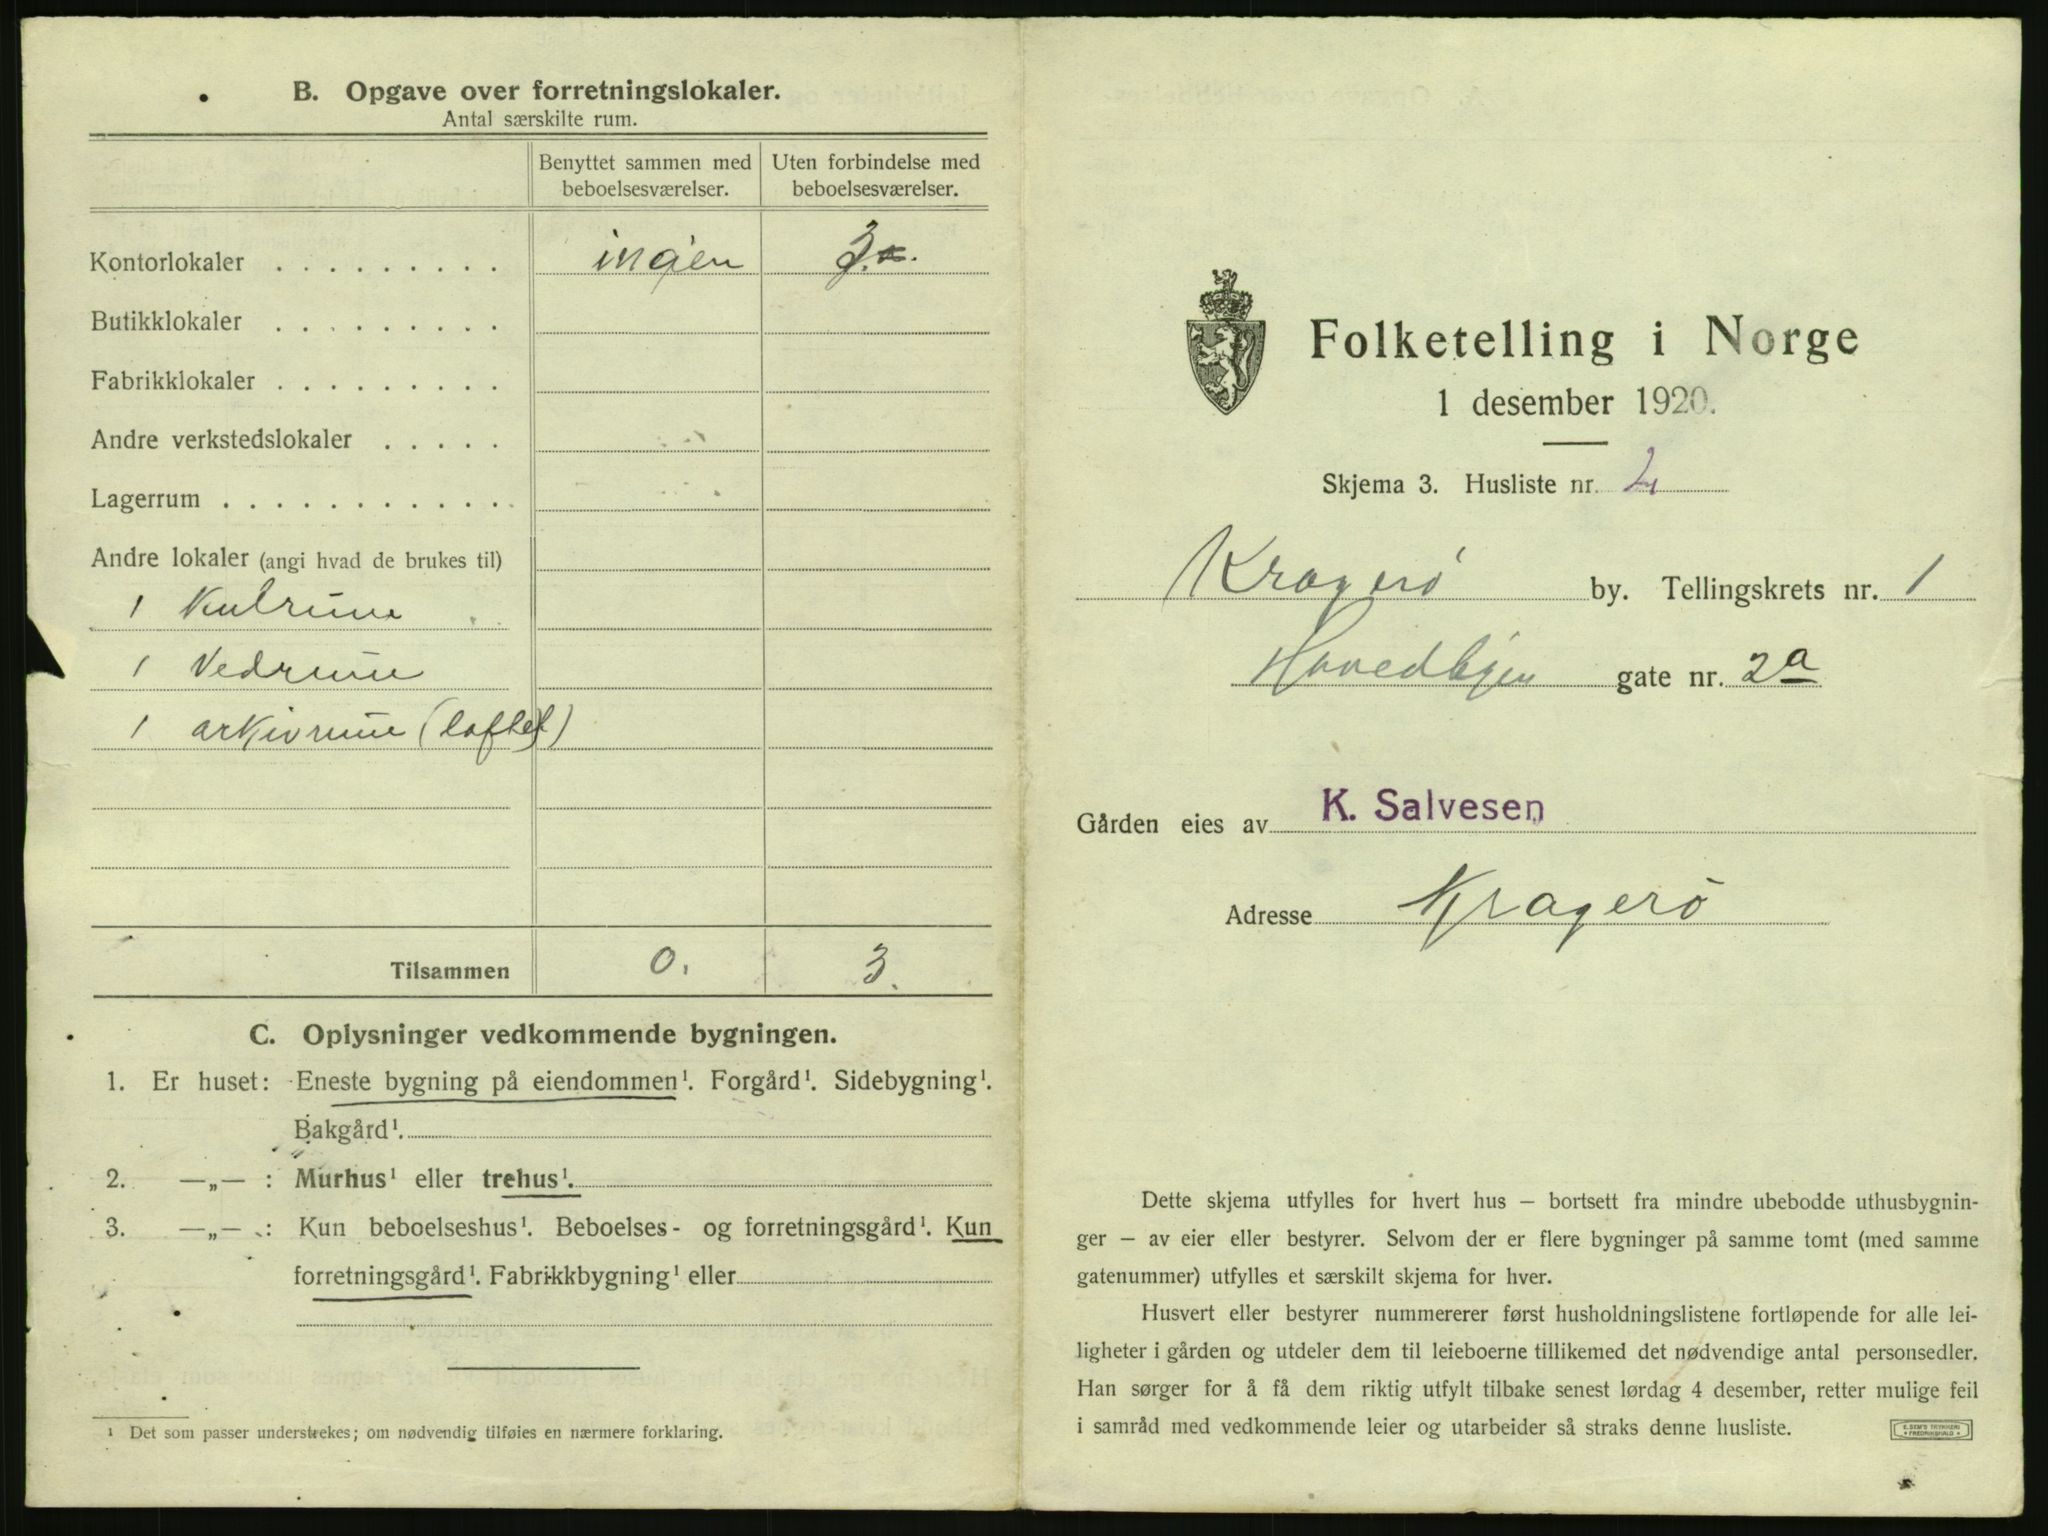 B. Opgave over forretningslokaler.
Antal særskilte rum.
Benyttet sammen med
beboelsesværelser.
Uten forbindelse med
beboelsesværelser.
Kontorlokaler . . . . . . . . . ingen 3.
Butikklokaler . . . . . . . . .
Fabrikklokaler . . . . . . . . .
Andre verkstedslokaler . . . . .
Lagerrum . . . . . . . . . . . .
Andre lokaler (angi hvad de brukes til)
1 Kulrum
1 Vedrum
1 arkivrum (loftet)
Tilsammen 0. 3.
C. Oplysninger vedkommende bygningen.
1. Er huset: Eneste bygning på eiendommen¹. Forgård¹. Sidebygning¹.
Bakgård¹.
2. —„— : Murhus¹ eller trehus¹.
3. —„— : Kun beboelseshus¹. Beboelses- og forretningsgård¹. Kun
forretningsgård¹. Fabrikkbygning¹ eller
¹ Det som passer understrekes; om nødvendig tilføies en nærmere forklaring.
Folketelling i Norge
1 desember 1920.
Skjema 3. Husliste nr. 2
Kragerö by. Tellingskrets nr. 1
Hovedbyen gate nr. 2a
Gården eies av K. Salvesen
Adresse Kragerö
Dette skjema utfylles for hvert hus — bortsett fra mindre ubebodde uthusbygnin-
ger — av eier eller bestyrer. Selvom der er flere bygninger på samme tomt (med samme
gatenummer) utfylles et særskilt skjema for hver.
Husvert eller bestyrer nummererer først husholdningslistene fortløpende for alle lei-
ligheter i gården og utdeler dem til leieboerne tillikemed det nødvendige antal personsedler.
Han sørger for å få dem riktig utfylt tilbake senest lørdag 4 desember, retter mulige feil
i samråd med vedkommende leier og utarbeider så straks denne husliste.
E. SEM'S TRYKKERI
FREDRIKSHALD